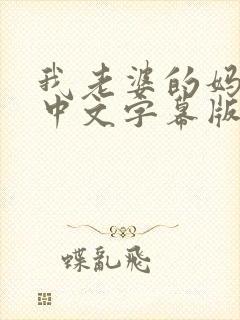 我老婆的妈
中文字幕版
蝶乱飛